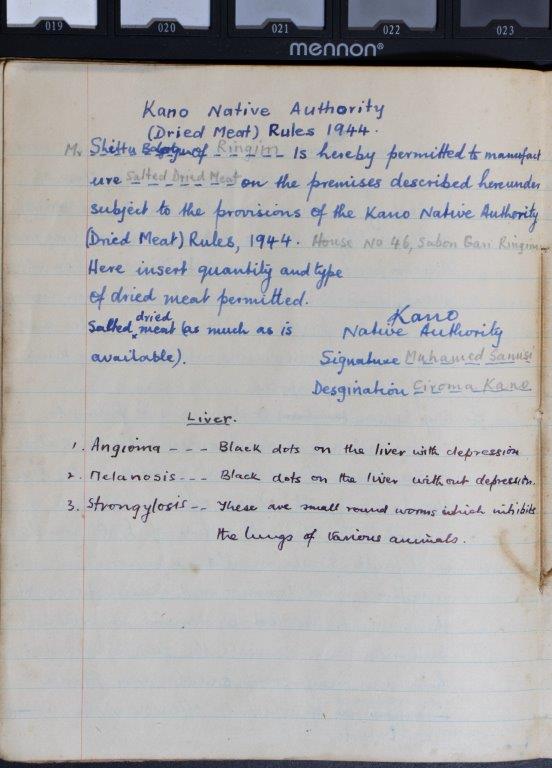 019 020 021 022 023
mennon®
Kano Native Authority
(Dried Meat) Rules 1944.
Mr Shittu of Ringim Is hereby permitted to manufact
ure Salted Dried Meat on the premises described hereunder
subject to the provisions of the Kano Native Authority
(Dried Meat) Rules, 1944. House No 46, Sabon Gari Ringim
Here insert quantity and type
of dried meat permitted.
Salted dried meat (as much as is
available).
Kano
Native Authority
Signature Muhamed Sanusi
Desgination Ciroma Kano
Liver.
1. Angioma --- Black dots on the liver with depression
2. Melanosis --- Black dots on the liver without depression.
3. Strongylosis -- These are small round worms which inhibits
the lungs of various animals.